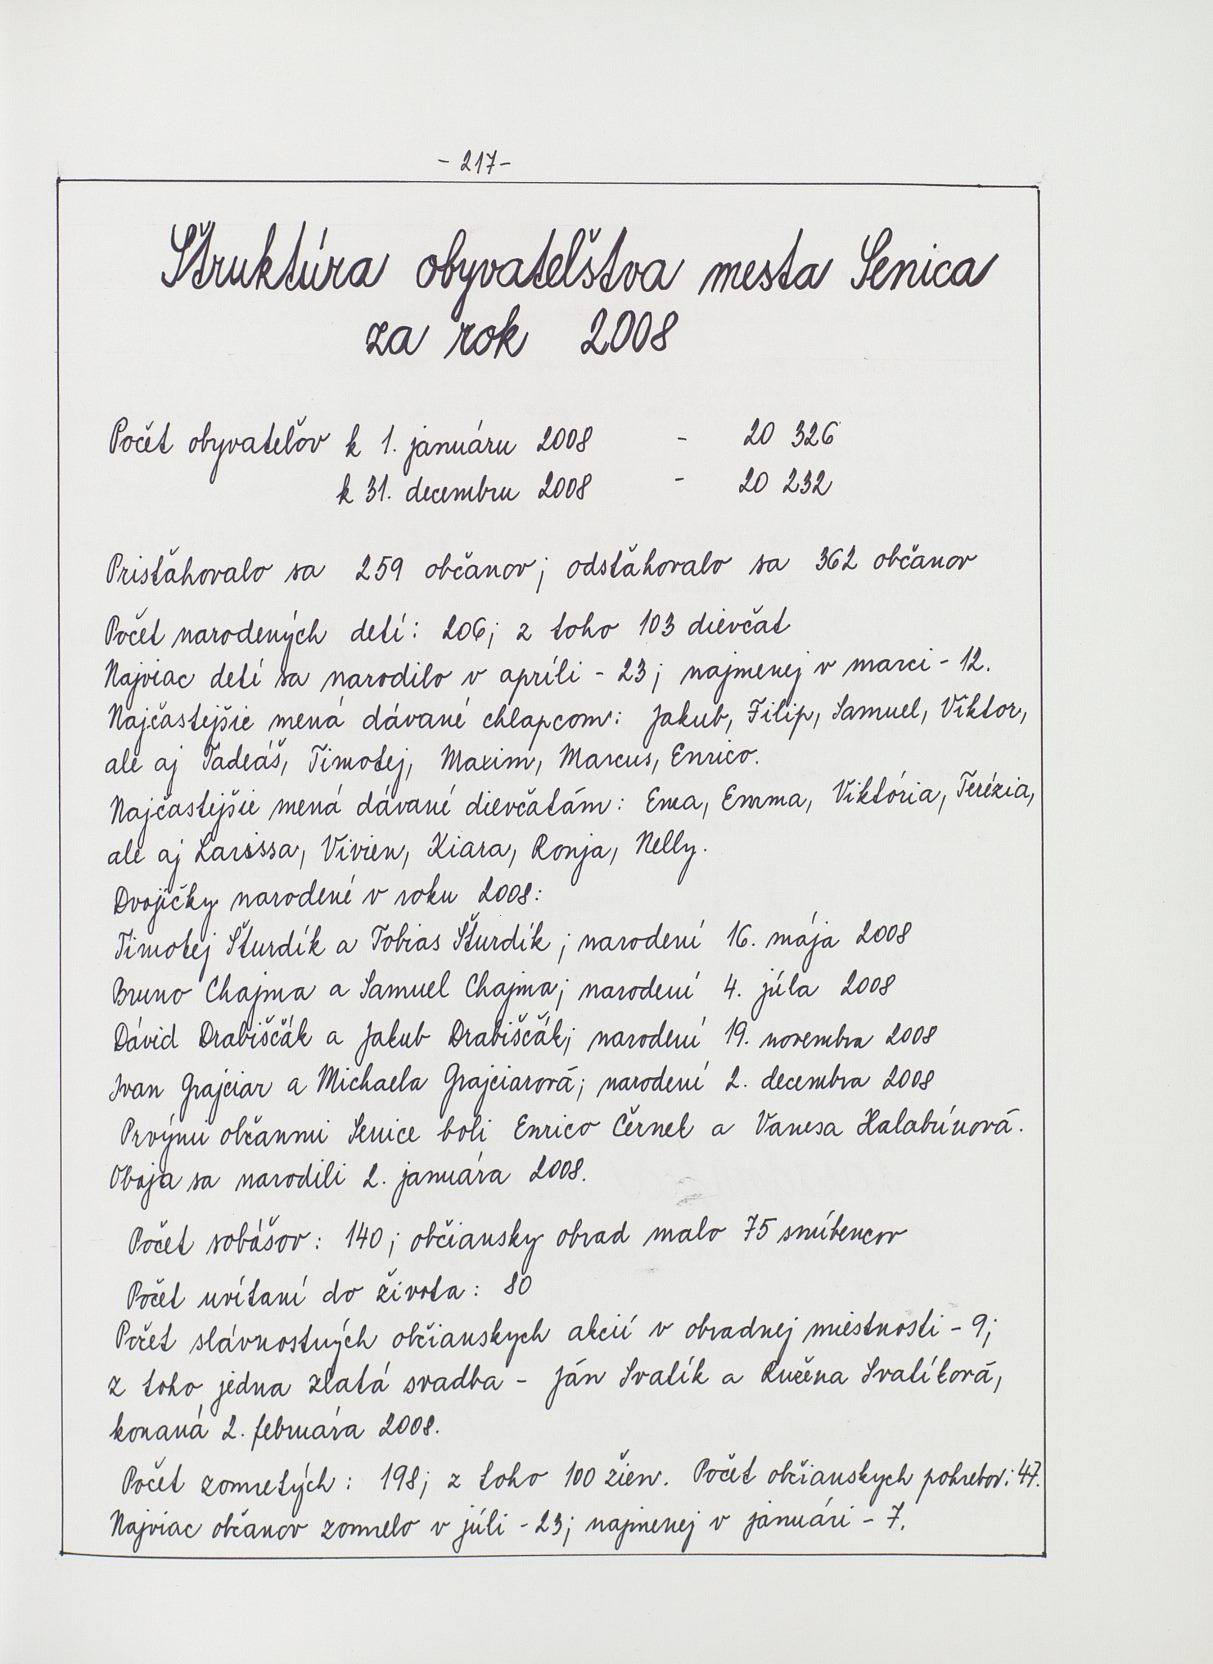 - 217 -
Štruktúra obyvateľstva mesta Senica
za rok 2008
Počet obyvateľov k 1. januáru 2008 - 20 326
k 31. decembru 2008 - 20 232
Prisťahovalo sa 259 občanov; odsťahovalo sa 362 občanov
Počet narodených detí: 206; z toho 103 dievčat
Najviac detí sa narodilo v apríli - 23; najmenej v marci - 12.
Najčastejšie mená dávané chlapcom: Jakub, Filip, Samuel, Viktor,
ale aj Tadeáš, Timotej, Maxim, Marcus, Enrico.
Najčastejšie mená dávané dievčatám: Ema, Emma, Viktória, Terézia,
ale aj Larissa, Vivien, Kiara, Ronja, Nelly.
Dvojičky narodené v roku 2008:
Timotej Šturdík a Tobias Šturdík; narodení 16. mája 2008
Bruno Chajma a Samuel Chajma; narodení 4. júla 2008
Dávid Drabiščák a Jakub Drabiščák; narodení 19. novembra 2008
Ivan Grajciar a Michaela Grajciarová; narodení 2. decembra 2008
Prvými občanmi Senice boli Enrico Černek a Vanesa Halabúnová.
Obaja sa narodili 2. januára 2008.
Počet sobášov: 140; občiansky obrad malo 75 snúbencov
Počet uvítaní do života: 80
Počet slávnostných občianskych akcií v obradnej miestnosti - 9;
z toho jedna zlatá svadba - Ján Svatík a Ružena Svatíková,
konaná 2. februára 2008.
Počet zomretých: 198; z toho 100 žien. Počet občianskych pohrebov: 47.
Najviac občanov zomrelo v júli - 23; najmenej v januári - 7.